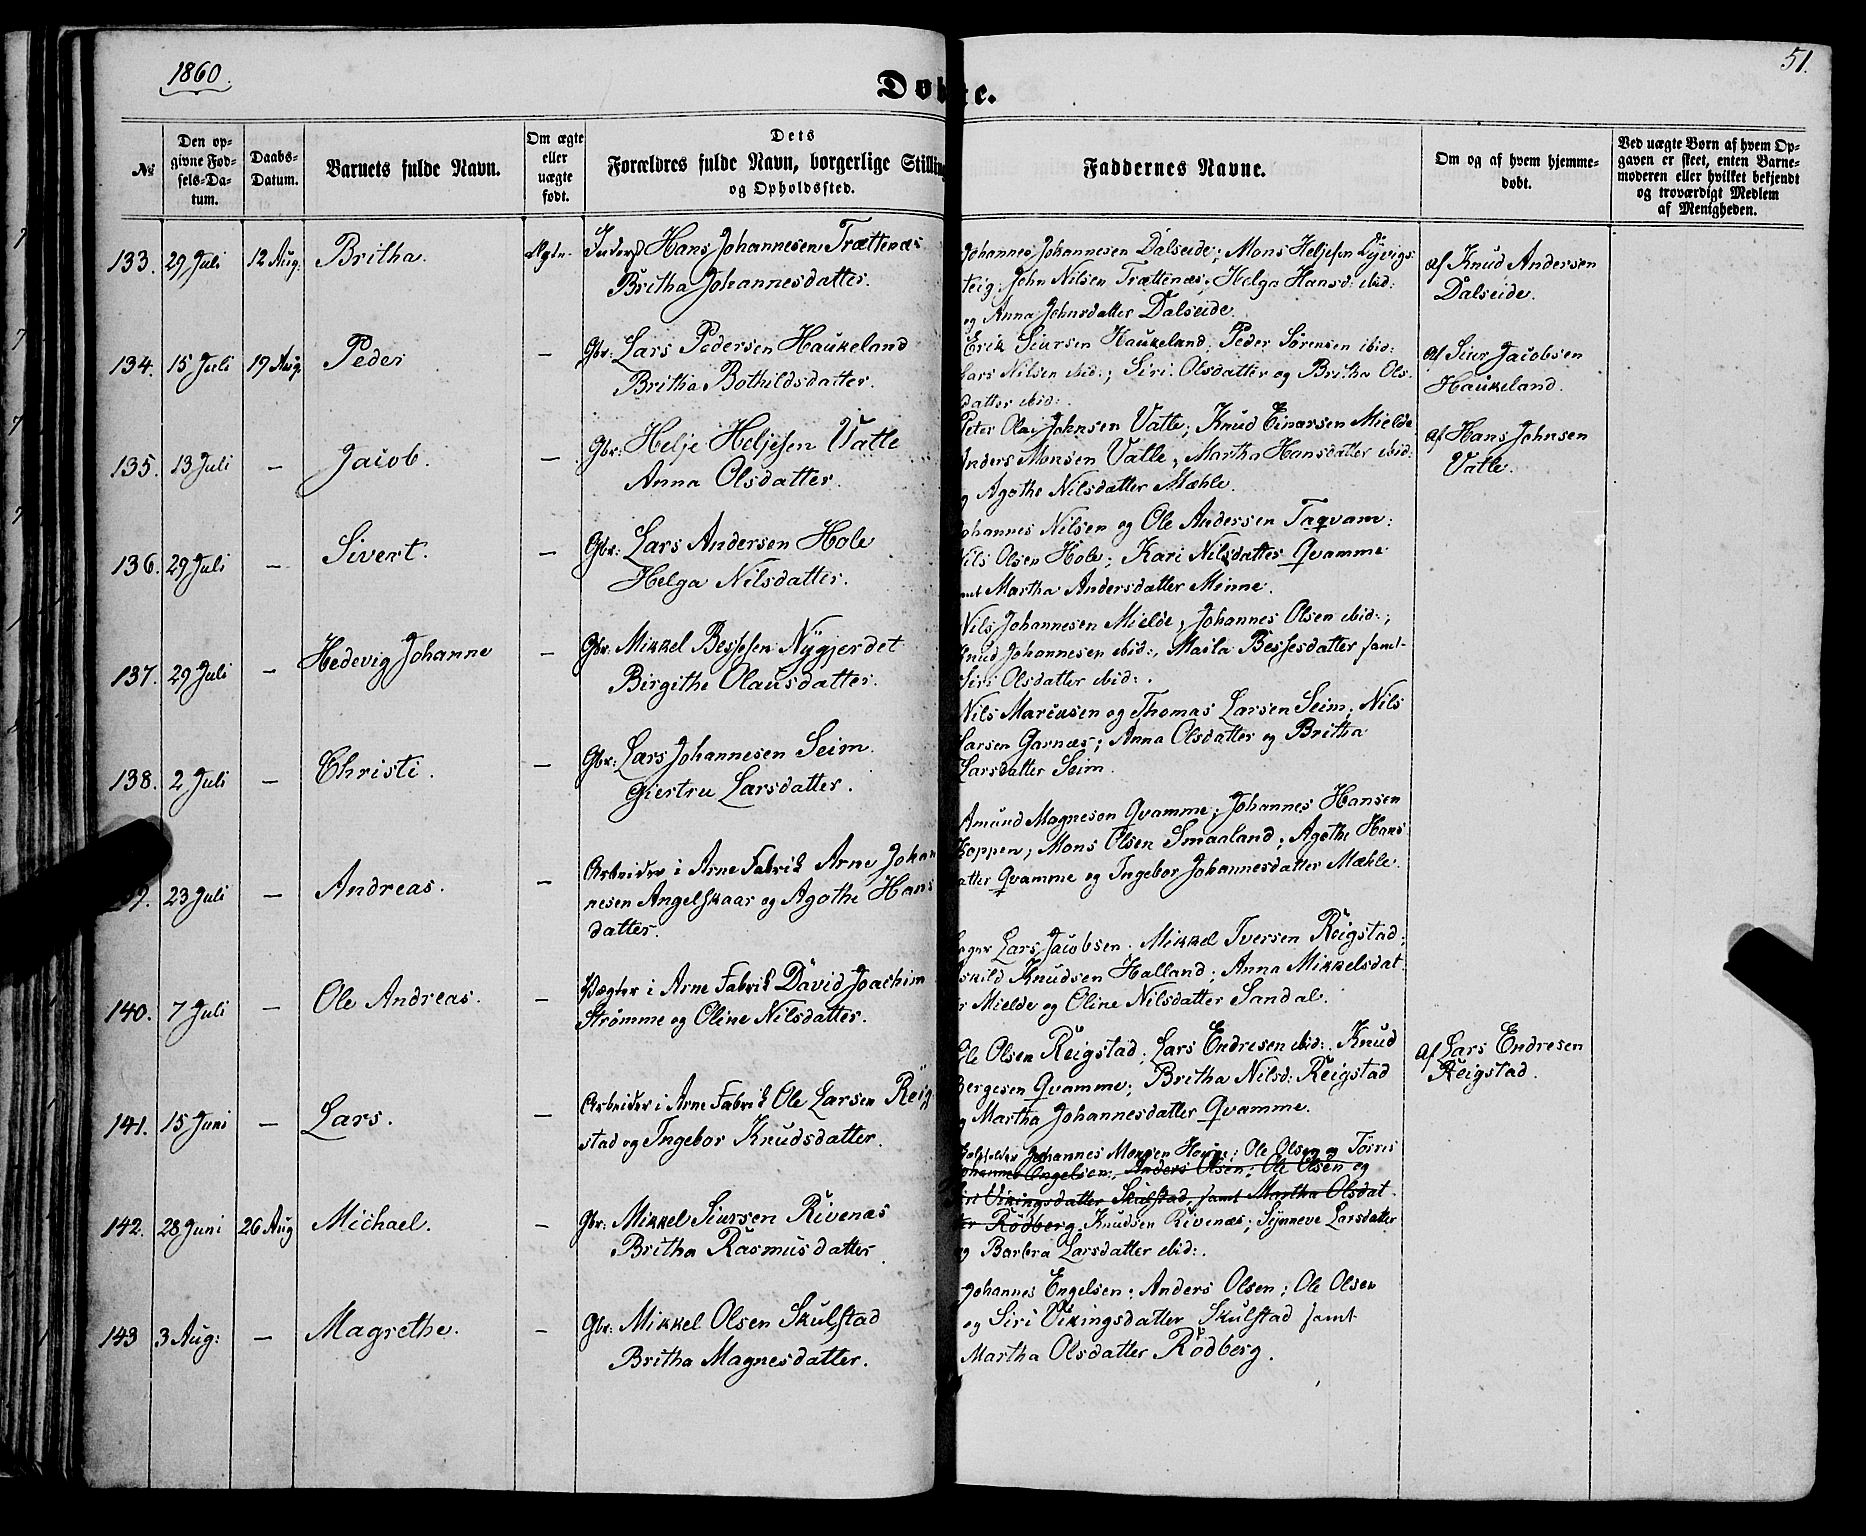 1860.
51.
Døbte.
№
Den opgivne Fødsels-Datum.
Daabs-Datum.
Barnets fulde Navn.
Om ægte eller uægte født.
Dets Forældres fulde Navn, borgerlige Stilling og Opholdssted.
Faddernes Navne.
Om og af hvem hjemmedøbt.
Ved uægte Børn af hvem Opgaven er skeet, enten Barnemoderen eller hvilket bekjendt og troværdigt Medlem af Menigheden.
133. 29 Juli 12 Aug. Britha. Ægte. Inderst Hans Johannesen Trættenæs
Britha Johannesdatter.
Johannes Johannesen Dalseide; Mons Heljesen Dyvigs
teig; John Nilsen Trættenæs; Helga Hansd: ibid:
og Anna Johnsdatter Dalseide.
af Knud Andersen
Dalseide.
134. 15 Juli 19 Aug Peder — Gbr: Lars Pedersen Haukeland
Britha Bothildsdatter.
Erik Siursen Haukeland; Peder Sørensen ibid:
Lars Nilsen ibid:; Siri Olsdatter og Britha Ols
datter ibid:.
af Siur Jacobsen
Haukeland.
135. 13 Juli — Jacob. — Gbr: Helje Heljesen Vatle
Anna Olsdatter.
Peter Olai Johnsen Vatle; Knud Einarsen Mielde
Anders Monsen Vatle; Martha Hansdatter ibid:
og Agothe Nilsdatter Mæhle.
af Hans Johnsen
Vatle.
136. 29 Juli — Sivert. — Gbr: Lars Andersen Hole
Helga Nilsdatter.
Johannes Nilsen og Ole Andersen Taqvam;
Nils Olsen Hole; Kari Nilsdatter Qvamme
samt Martha Andersdatter Minne.
137. 29 Juli — Hedevig Johanne — Gbr. Mikkel Bessesen Nygjerdet
Birgithe Olausdatter.
Nils Johannesen Mielde; Johannes Olsen ibid:;
Knud Johannesen ibid:, Marla Bessesdatter samt
Siri Olsdatter ibid:.
138. 2 Juli — Christi. — Gbr: Lars Johannesen Seim.
Giertru Larsdatter.
Nils Marcusen og Thomas Larsen Seim; Nils
Larsen Garnæs; Anna Olsdatter og Britha
Larsdatter Seim.
139. 23 Juli — Andreas. — Arbeider i Arne Fabrik Arne Johan
nesen Angelskaar og Agothe Hans
datter.
Amund Magneson Qvamme; Johannes Hansen
Koppen; Mons Olsen Smaaland; Agothe Hans
datter Qvamme og Ingebor Johannesdatter Mæhle.
140. 7 Juli — Ole Andreas. — Vægter i Arne Fabrik David Joachim
Strømme og Oline Nilsdatter.
Lars Jacobsen; Mikkel Iversen Reigstad;
Eskild Knudsen Halland; Anna Mikkelsdat
ter Mielde og Oline Nilsdatter Sandal.
141. 15 Juni — Lars. — Arbeider i Arne Fabrik Ole Larsen Reig
stad og Ingebor Knudsdatter.
Ole Olsen Reigstad; Lars Endresen ibid:. Knud
Bergesen Qvamme; Britha Nilsd: Reigstad
og Martha Johannesdatter Qvamme.
af Lars Endresen
Reigstad.
142. 28 Juni 26 Aug Michael. — Gbr: Mikkel Siursen Rivenæs
Britha Rasmusdatter
Johannes Monsen Ole Olsen og Tørres
Johannes Engelsen; Anders Olsen; Ole Olsen og
Siri Vikingsdatter Skulstad, samt Martha Olsdat
ter Rødberg. Knudsen Rivenæs; Synneve Larsdatter
og Barbra Larsdatter ibid:.
143 3 Aug: — Magrethe. — Gbr: Mikkel Olsen Skulstad
Britha Magnesdatter.
Johannes Engelsen; Anders Olsen; Ole Olsen
og Siri Vikingsdatter Skulstad samt
Martha Olsdatter Rødberg.